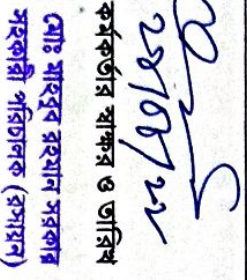 কর্মকর্তার স্বাক্ষর ও তারিখ
মোঃ মাহবুব রহমান সরকার
সহকারী পরিচালক (রসায়ন)